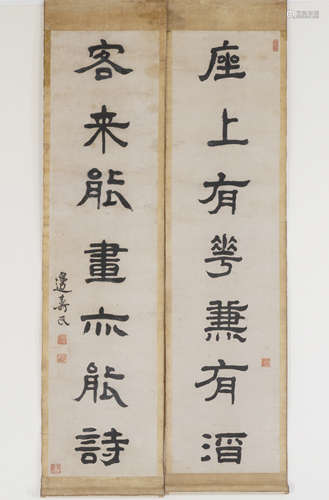 座上有琴兼有酒
客来能畫亦能詩
邊壽民